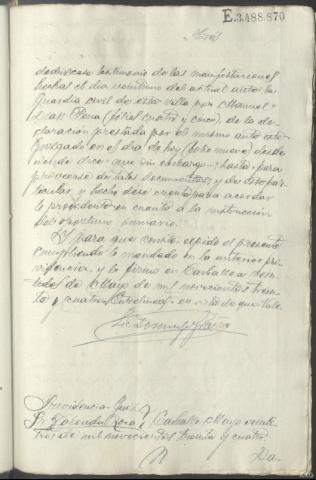 E.3.488.870
dedúzcase testimonio de las manifestaciones
hechas el día veintiuno del actual ante la
Guardia civil de esta villa por Manuel
Pena (folios cuatro y cinco), de la de-
claración prestada por el mismo ante este
Juzgado en el día de hoy (folio nueve) desde
donde dice: que sin embargo hasta para
proveerse de tales documentos; y de otro par-
ticular, y hecho dese cuenta para acordar
lo procedente en cuanto a la instrucción
del oportuno sumario.
Y para que conste, expido el presente
cumpliendo lo mandado en la anterior pro-
videncia, y lo firmo en Carballo a
de Mayo de mil novecientos trein-
ta y cuatro. Entrelíneas, en vista de que. Vale.
Providencia Juez
Sr. Rosa
Carballo Mayo veinte
tres de mil novecientos treinta y cuatro.
Da-